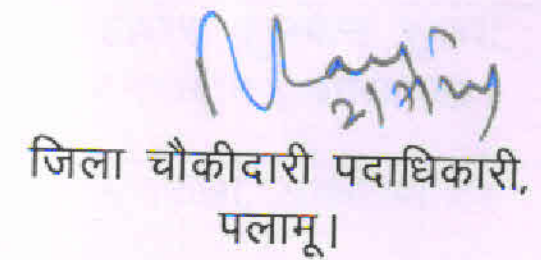 जिला चौकीदारी पदाधिकारी,
पलामू।